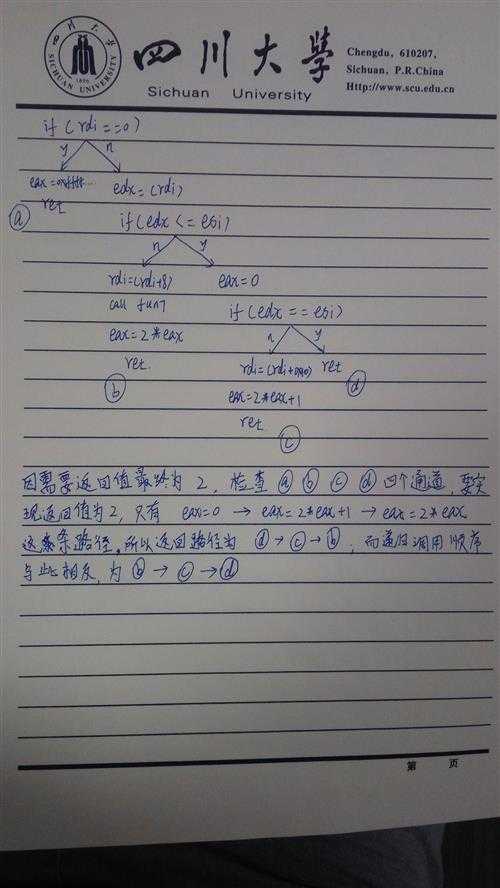 四川大學
Sichuan University
Chengdu, 610207,
Sichuan, P.R.China
Http://www.scu.edu.cn
四川大學
1896
SICHUAN UNIVERSITY
if(rdi==0)
y n
eax=0xffff... edx=(rdi)
ret
ⓐ if(edx<=esi)
n y
rdi=(rdi+8) eax=0
call fun7 if(edx==esi)
eax=2*eax n y
ret. rdi=(rdi+0x10) ret
ⓑ ⓓ
eax=2*eax+1
ret
ⓒ
因需要返回值最终为2, 检查ⓐⓑⓒⓓ四个通道, 要实
现返回值为2, 只有 eax=0 → eax=2*eax+1 → eax=2*eax
这条路径。所以返回路径为 ⓓ→ⓒ→ⓑ, 而递归调用顺序
与此相反, 为 ⓑ→ⓒ→ⓓ
第 页